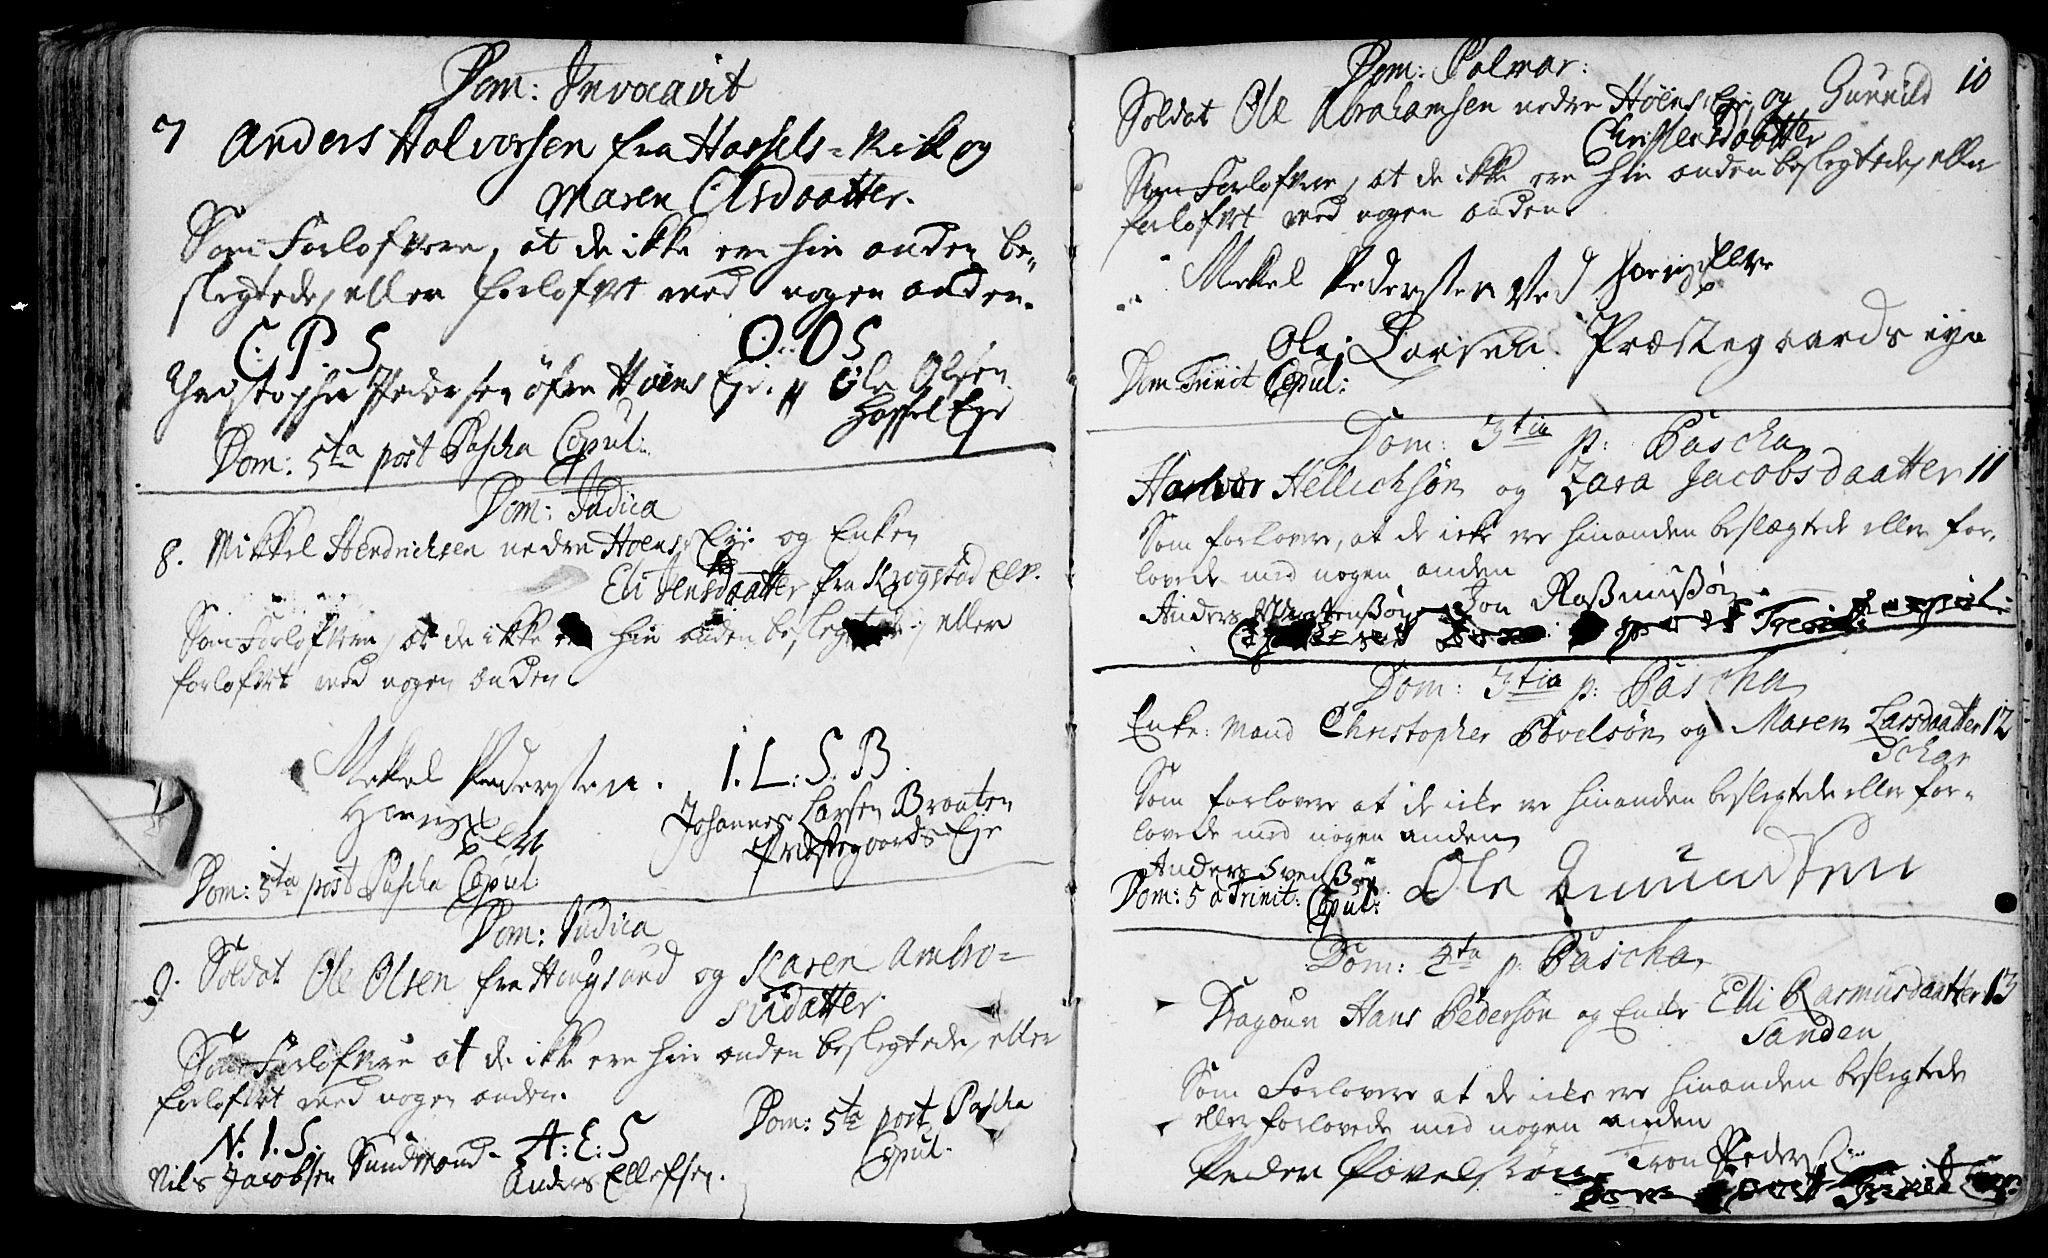 Dom: Invocavit
7 Anders Halvorsen fra Hassels-Vik og
Maren Olsdaatter.
Som Forlofvere, at de ikke ere hin anden be-
slegtede, eller forlofvet med nogen anden.
C. P. S O. O S
Christopher Pedersen öfre Höens Eje. Ole Olsen
Hassel Eje
Dom: 5ta post Pascha Copul:
Dom: Judica
8. Mikkel Hendrichsen nedre Hoens Eje og Enken
Eli Jensdaatter fra Krogstad Elv.
Som Forlofvere, at de ikke hin anden beslegtede, eller
forlofvet med nogen anden.
Mekel Pedersten. I. L: S. B.
Johannes Larsen Braaten
Elve Præstegaards Eje
Dom: 5ta post Pascha Copul:
Dom: Judica
9. Soldat Ole Olsen fra Haugsund og Karen Ambro-
sidatter.
Som Forlofvere at de ikke ere hin anden beslegtede, eller
forlofvet med nogen anden.
N. I. S. A: E: S Dom: 5ta post Pascha
Nils Jacobsen Sundmand Anders Ellefsen. Copul:
Dom: Palmar:
Soldat Ole Abrahamsen nedre Höens Eje og Gunnild 10
Christensdaatter
Som Forlofvere, at de ikke ere hin anden beslegtede, eller
forlofvet med nogen anden.
Mekel Pedersten ved Elve
Ole Larsen Præstegaards eye
Dom Trinit Copul:
Dom: 3tia p: Pascha
Halvor Hellichsøn og Zara Jacobsdaatter 11
Som forlovere, at de icke ere hinanden beslægtede eller for-
lovede med nogen anden
Anders Mortensøn Jon Rasmusøn
Dom: 3tia p: Pascha
Enke-Mand Christopher Povelsøn og Maren Larsdaatter 12
Som forlovere at de icke ere hinanden beslegtede eller for-
lovede med nogen anden
Anders Svensøn Ole Gunundsen
Dom: 5 a Trinit: Copul:
Dom: 4ta p: Pascha
Dragoun Hans Pedersøn og Enke Elli Rasmusdaatter 13
Sanden
Som Forlovere at de icke ere hinanden beslegtede
eller forlovede med nogen anden
Peder Povelsøn Tron Peders